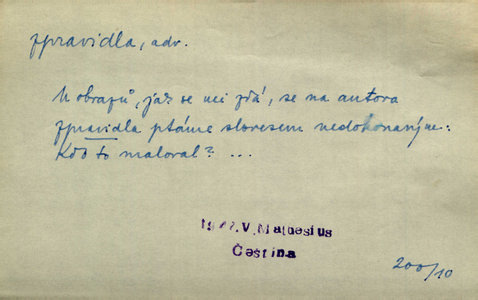 zpravidla, adv.
U obrazů, jak se mi zdá, se na autora
zpravidla ptáme slovesem nedokonavým:
Kdo to maloval? ...
V. Mathesius
Čeština
200/10